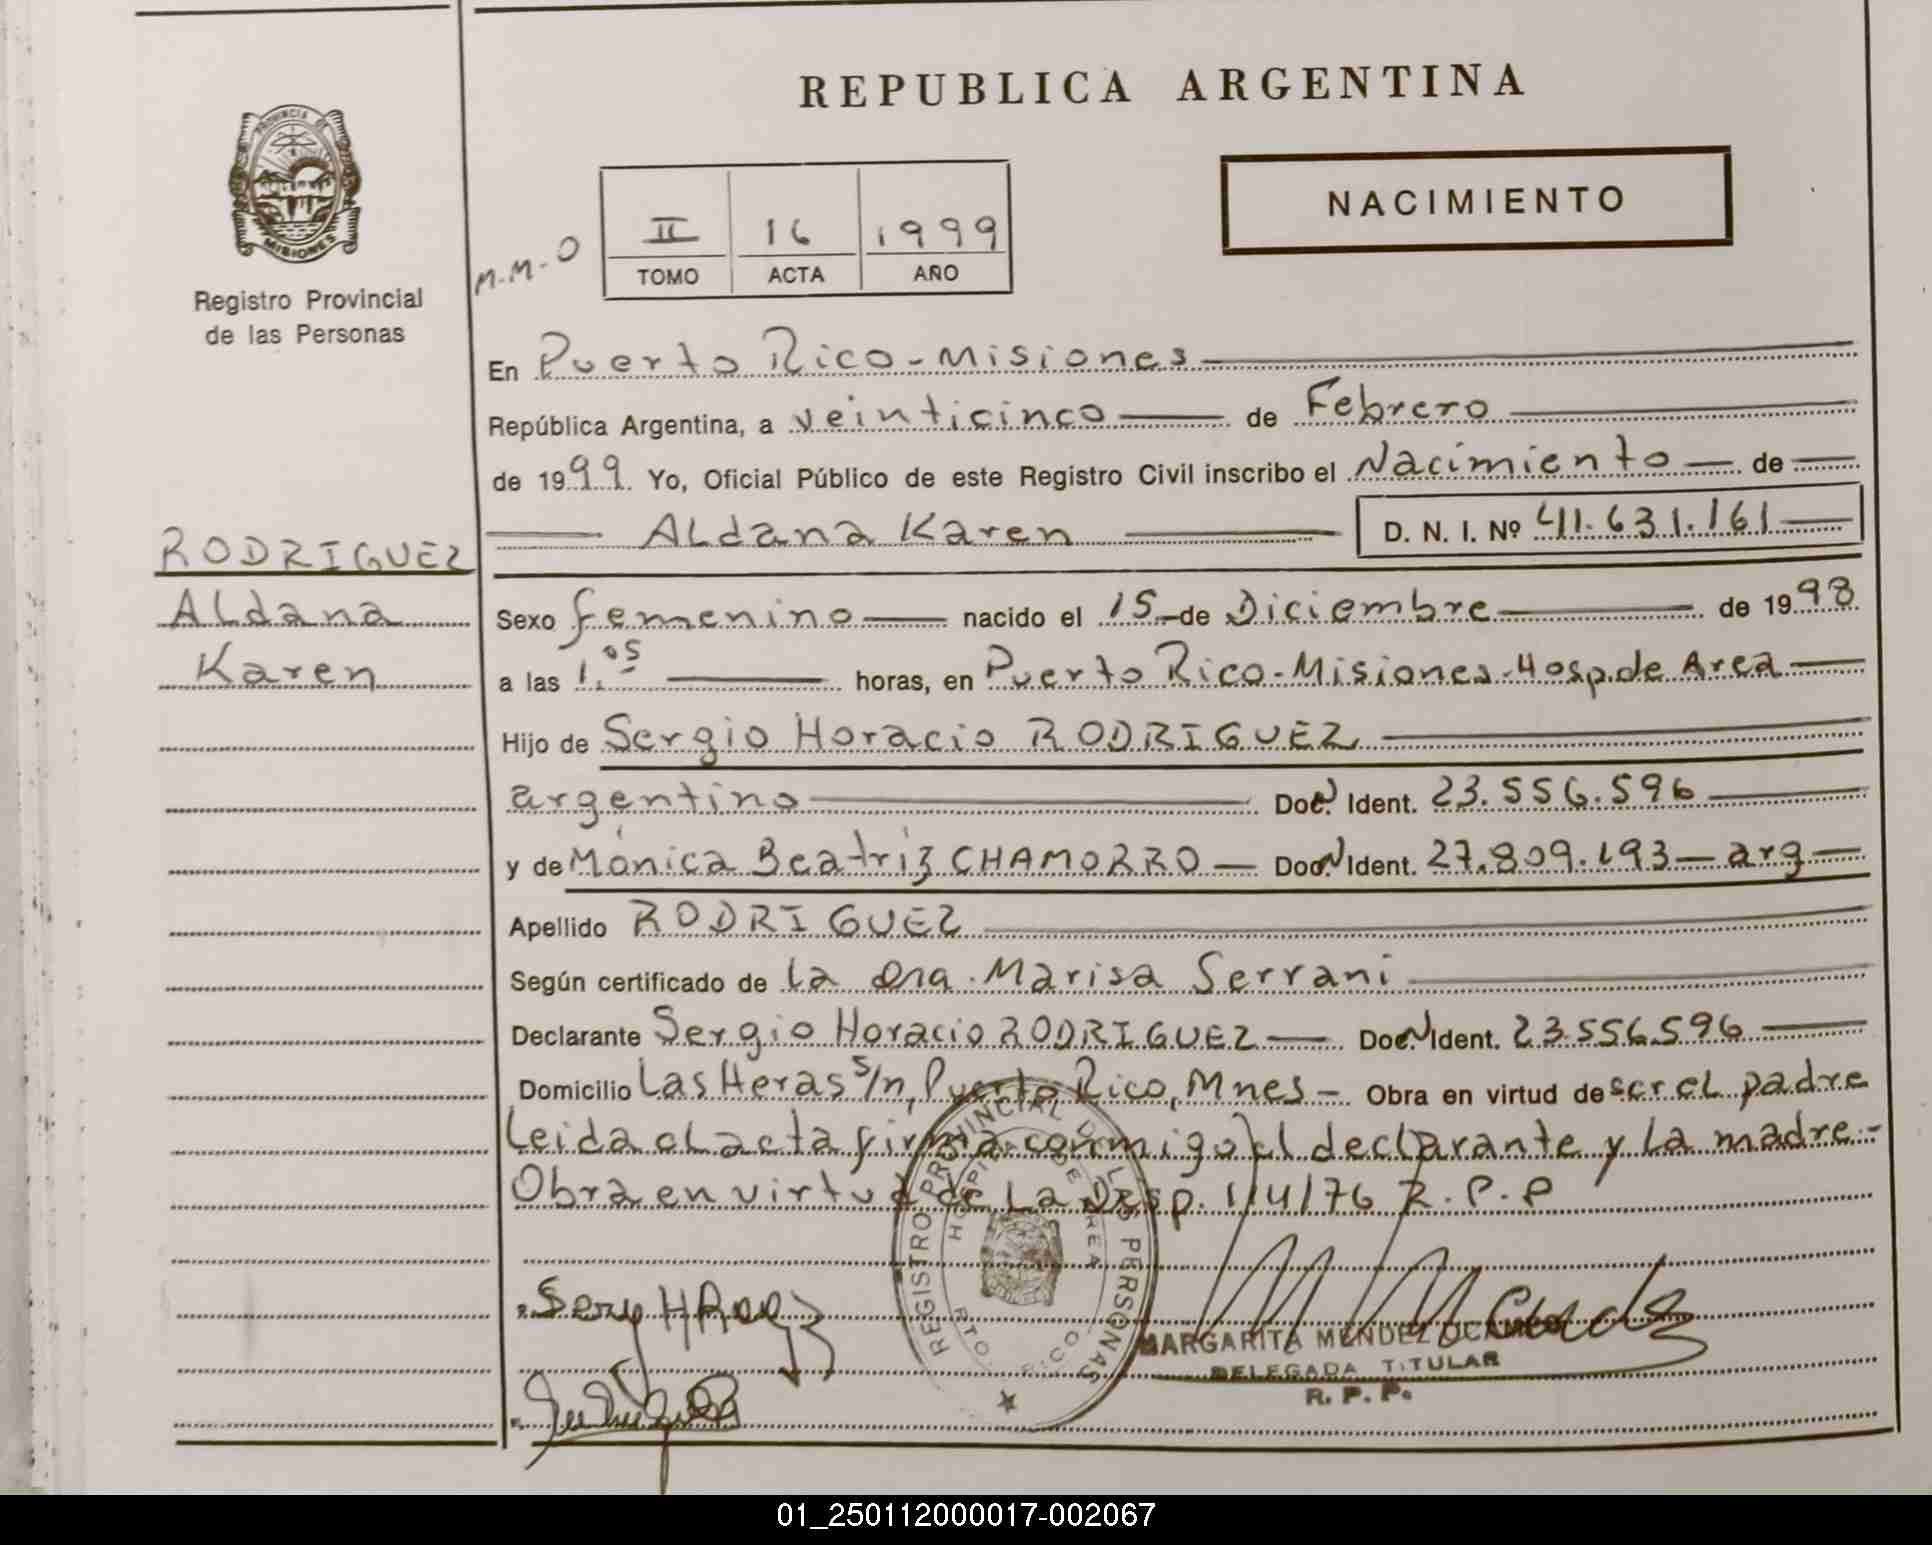 REPUBLICA ARGENTINA
PROVINCIA DE
MISIONES
Registro Provincial
de las Personas
NACIMIENTO
M.M.O
II 16 1999
TOMO ACTA AÑO
En Puerto Rico - Misiones
República Argentina, a veinticinco de Febrero
de 1999. Yo, Oficial Público de este Registro Civil inscribo el Nacimiento de
Aldana Karen D. N. I. Nº 41.631.161
RODRIGUEZ
Aldana
Karen
Sexo femenino nacido el 15 de Diciembre de 1998
a las 1.05 horas, en Puerto Rico - Misiones - Hosp. de Area
Hijo de Sergio Horacio RODRIGUEZ
argentino Doc. Ident. 23.556.596
y de Mónica Beatriz CHAMORRO Doc. Ident. 27.809.193 - arg
Apellido RODRIGUEZ
Según certificado de la Dra. Marisa Serrani
Declarante Sergio Horacio RODRIGUEZ Doc. Ident. 23.556.596
Domicilio Las Heras s/n, Puerto Rico, Mnes - Obra en virtud de ser el padre
Leida el acta firma conmigo el declarante y la madre.-
Obra en virtud de la Disp. 114/76 R.P.P
REGISTRO PROVINCIAL DE LAS PERSONAS
HOSPITAL DE AREA
PTO. RICO
MARGARITA MENDEZ OCAMPO
DELEGADA TITULAR
R. P. P.
01_250112000017-002067